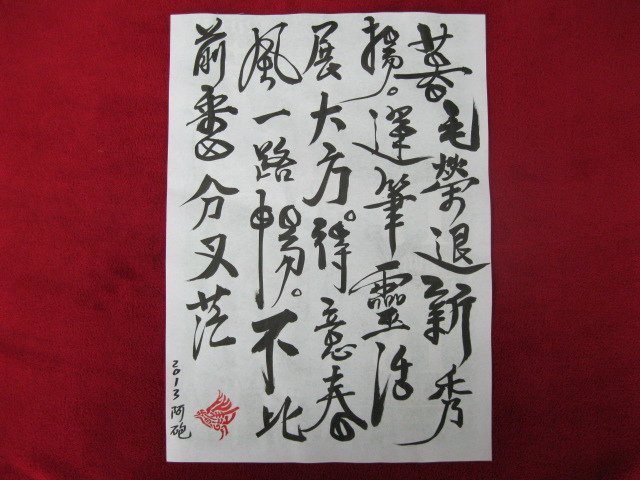 暮毛榮退新秀
揚。運筆靈活
展大方。得意春
風一路暢。不比
前番分叉茫
2013 阿砲